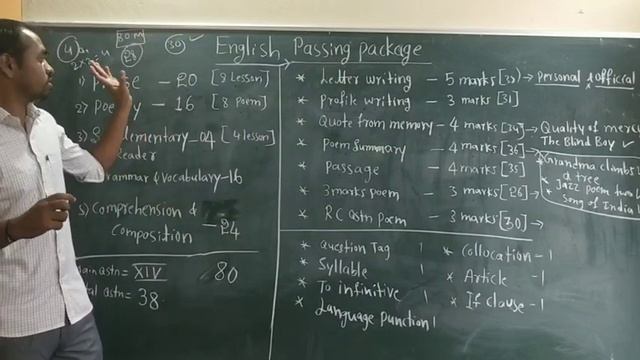 English Passing package
80M
4
29
30
1) Prose - 20 [9 Lesson]
2) Poetry - 16 [8 Poem]
3) Supplementary - 04 [4 lesson]
Reader
Grammar & Vocabulary - 16
5) Comprehension &
Composition - 24
Main qstn = XIV 80
38
* Letter writing - 5 marks [33] → personal & offical
* Profile writing - 3 marks [31]
* Quote from memory - 4 marks [34] → Quality of mercy
The Blind Boy ✓
* Poem Summary - 4 marks [36] → Grandma climbs
a tree
* Passage - 4 marks [35]
* Jazz poem two
* 3marks poem - 3 marks [26] → Song of India
* RC qstn poem - 3 marks [30] →
* Question Tag 1 * Collocation - 1
* Syllable 1 * Article - 1
* To infinitive 1 * If clause - 1
* Language Function 1